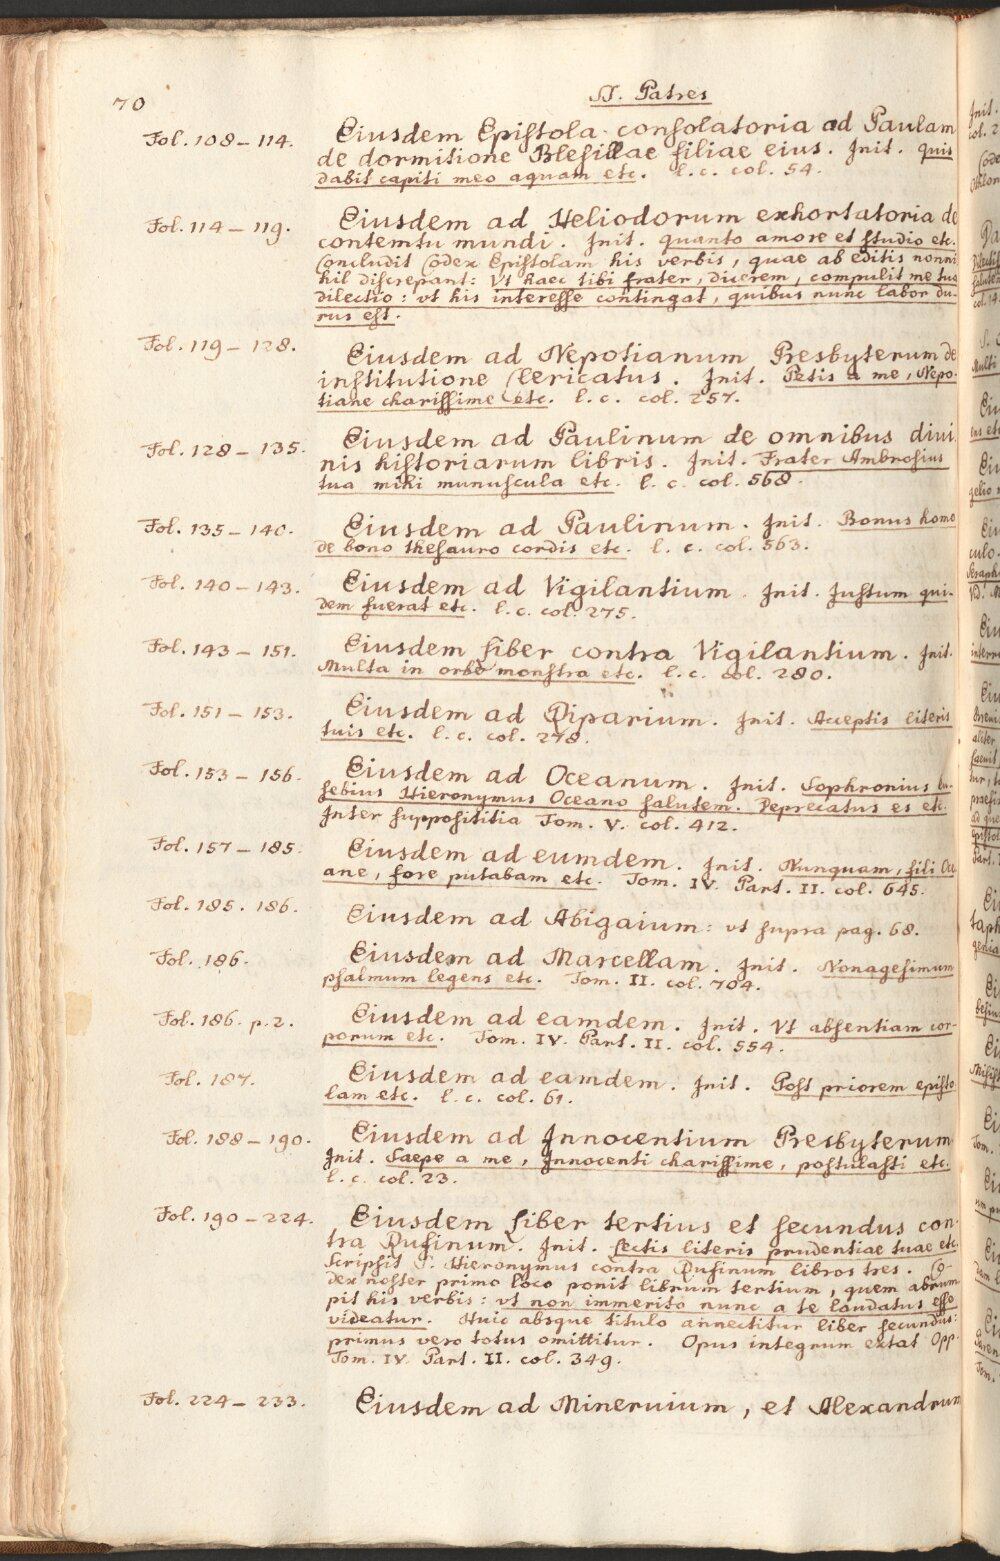 70
SS. Patres
Fol. 108 – 114.
Eiusdem Epistola consolatoria ad Paulam
de dormitione Blesillae filiae eius. Init. quis
dabit capiti meo aquam etc. l. c. col. 54.
Fol. 114 – 119.
Eiusdem ad Heliodorum exhortatoria de
contemtu mundi. Init. quanto amore et studio etc.
Concludit Codex Epistolam his verbis, quae ab editis nonni
hil discrepant: Vt haec tibi frater, dicerem, compulit me tua
dilectio: vt his interesse contingat, quibus nunc labor du-
rus est.
Fol. 119 – 128.
Eiusdem ad Nepotianum Presbyterum de
institutione Clericatus. Init. Petis a me, Nepo-
tiane charissime etc. l. c. col. 257.
Fol. 128 – 135.
Eiusdem ad Paulinum de omnibus divi
nis historiarum libris. Init. Frater Ambrosius
tua mihi munuscula etc. l. c. col. 568.
Fol. 135 – 140.
Eiusdem ad Paulinum. Init. Bonus homo
de bono thesauro cordis etc. l. c. col. 563.
Fol. 140 – 143.
Eiusdem ad Vigilantium. Init. Justum qui-
dem fuerat etc. l. c. col. 275.
Fol. 143 – 151.
Eiusdem Liber contra Vigilantium. Init.
Multa in orbe monstra etc. l. c. col. 280.
Fol. 151 – 153.
Eiusdem ad Riparium. Init. Acceptis literis
tuis etc. l. c. col. 278.
Fol. 153 – 156.
Eiusdem ad Oceanum. Init. Sophronius Eu-
sebius Hieronymus Oceano salutem. Deprecatus es etc.
Inter supposititia Tom. V. col. 412.
Fol. 157 – 185.
Eiusdem ad eumdem. Init. Nunquam, fili Oce
ane, fore putabam etc. Tom. IV. Part. II. col. 645.
Fol. 185. 186.
Eiusdem ad Abigaium: vt supra pag. 68.
Fol. 186.
Eiusdem ad Marcellam. Init. Nonagesimum
psalmum legens etc. Tom. II. col. 704.
Fol. 186. p. 2.
Eiusdem ad eamdem. Init. Vt absentiam cor-
porum etc. Tom. IV. Part. II. col. 554.
Fol. 187.
Eiusdem ad eamdem. Init. Post priorem episto
lam etc. l. c. col. 61.
Fol. 188 – 190.
Eiusdem ad Innocentium Presbyterum
Init. Saepe a me, Innocenti charissime, postulasti etc.
l. c. col. 23.
Fol. 190 – 224.
Eiusdem Liber tertius et secundus con-
tra Rufinum. Init. Lectis literis prudentiae tuae etc.
Scripsit S. Hieronymus contra Rufinum libros tres. Co-
dex noster primo loco ponit librum tertium, quem abrum
pit his verbis: vt non immerito nunc a te laudatus esse
videatur. Huic absque titulo annectitur liber secundus:
primus vero totus omittitur. Opus integrum extat Opp.
Tom. IV. Part. II. col. 349.
Fol. 224 – 233.
Eiusdem ad Mineruium, et Alexandrum